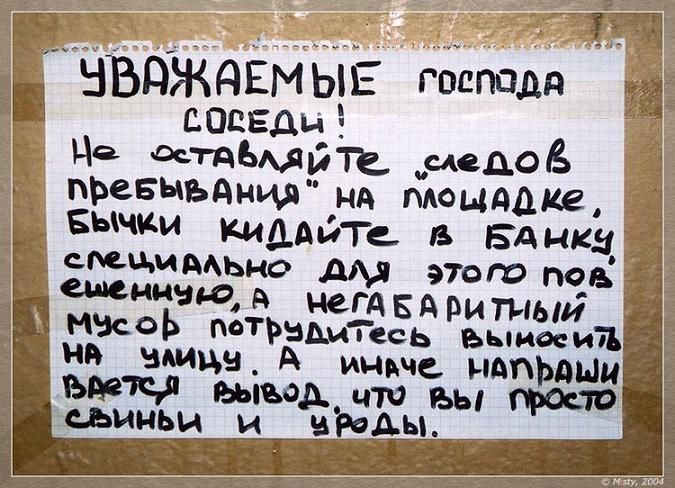 УВАЖАЕМЫЕ ГОСПОДА
СОСЕДИ!
Не оставляйте „следов
пребывания" на площадке,
бычки кидайте в банку,
специально для этого пов
ешенную, а негабаритный
мусор потрудитесь выносить
на улицу. А иначе напраши
вается вывод, что вы просто
свиньи и уроды.
© Misty, 2004